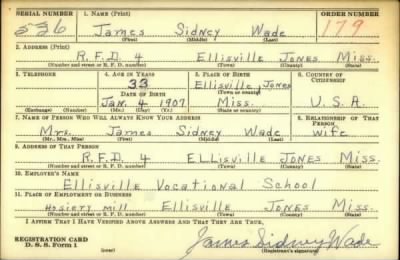 SERIAL NUMBER 1. NAME (Print) ORDER NUMBER
James Sidney Wade 179
(First) (Middle) (Last)
2. ADDRESS (Print)
R.F.D. 4 Ellisville Jones Miss.
(Number and street or R. F. D. number) (Town) (County) (State)
3. TELEPHONE 4. AGE IN YEARS 5. PLACE OF BIRTH 6. COUNTRY OF CITIZENSHIP
33 Ellisville Jones
DATE OF BIRTH (Town or county)
Jan. 4 1907 Miss. U.S.A.
(Exchange) (Number) (Mo.) (Day) (Yr.) (State or country)
7. NAME OF PERSON WHO WILL ALWAYS KNOW YOUR ADDRESS 8. RELATIONSHIP OF THAT PERSON
Mrs. James Sidney Wade wife
(Mr., Mrs., Miss) (First) (Middle) (Last)
9. ADDRESS OF THAT PERSON
R.F.D. 4 Ellisville Jones Miss.
(Number and street or R. F. D. number) (Town) (County) (State)
10. EMPLOYER'S NAME
Ellisville Vocational School
11. PLACE OF EMPLOYMENT OR BUSINESS
Hosiery mill Ellisville Jones Miss.
(Number and street or R. F. D. number) (Town) (County) (State)
I AFFIRM THAT I HAVE VERIFIED ABOVE ANSWERS AND THAT THEY ARE TRUE.
REGISTRATION CARD
D. S. S. Form 1 (over) James Sidney Wade
(Registrant's signature)